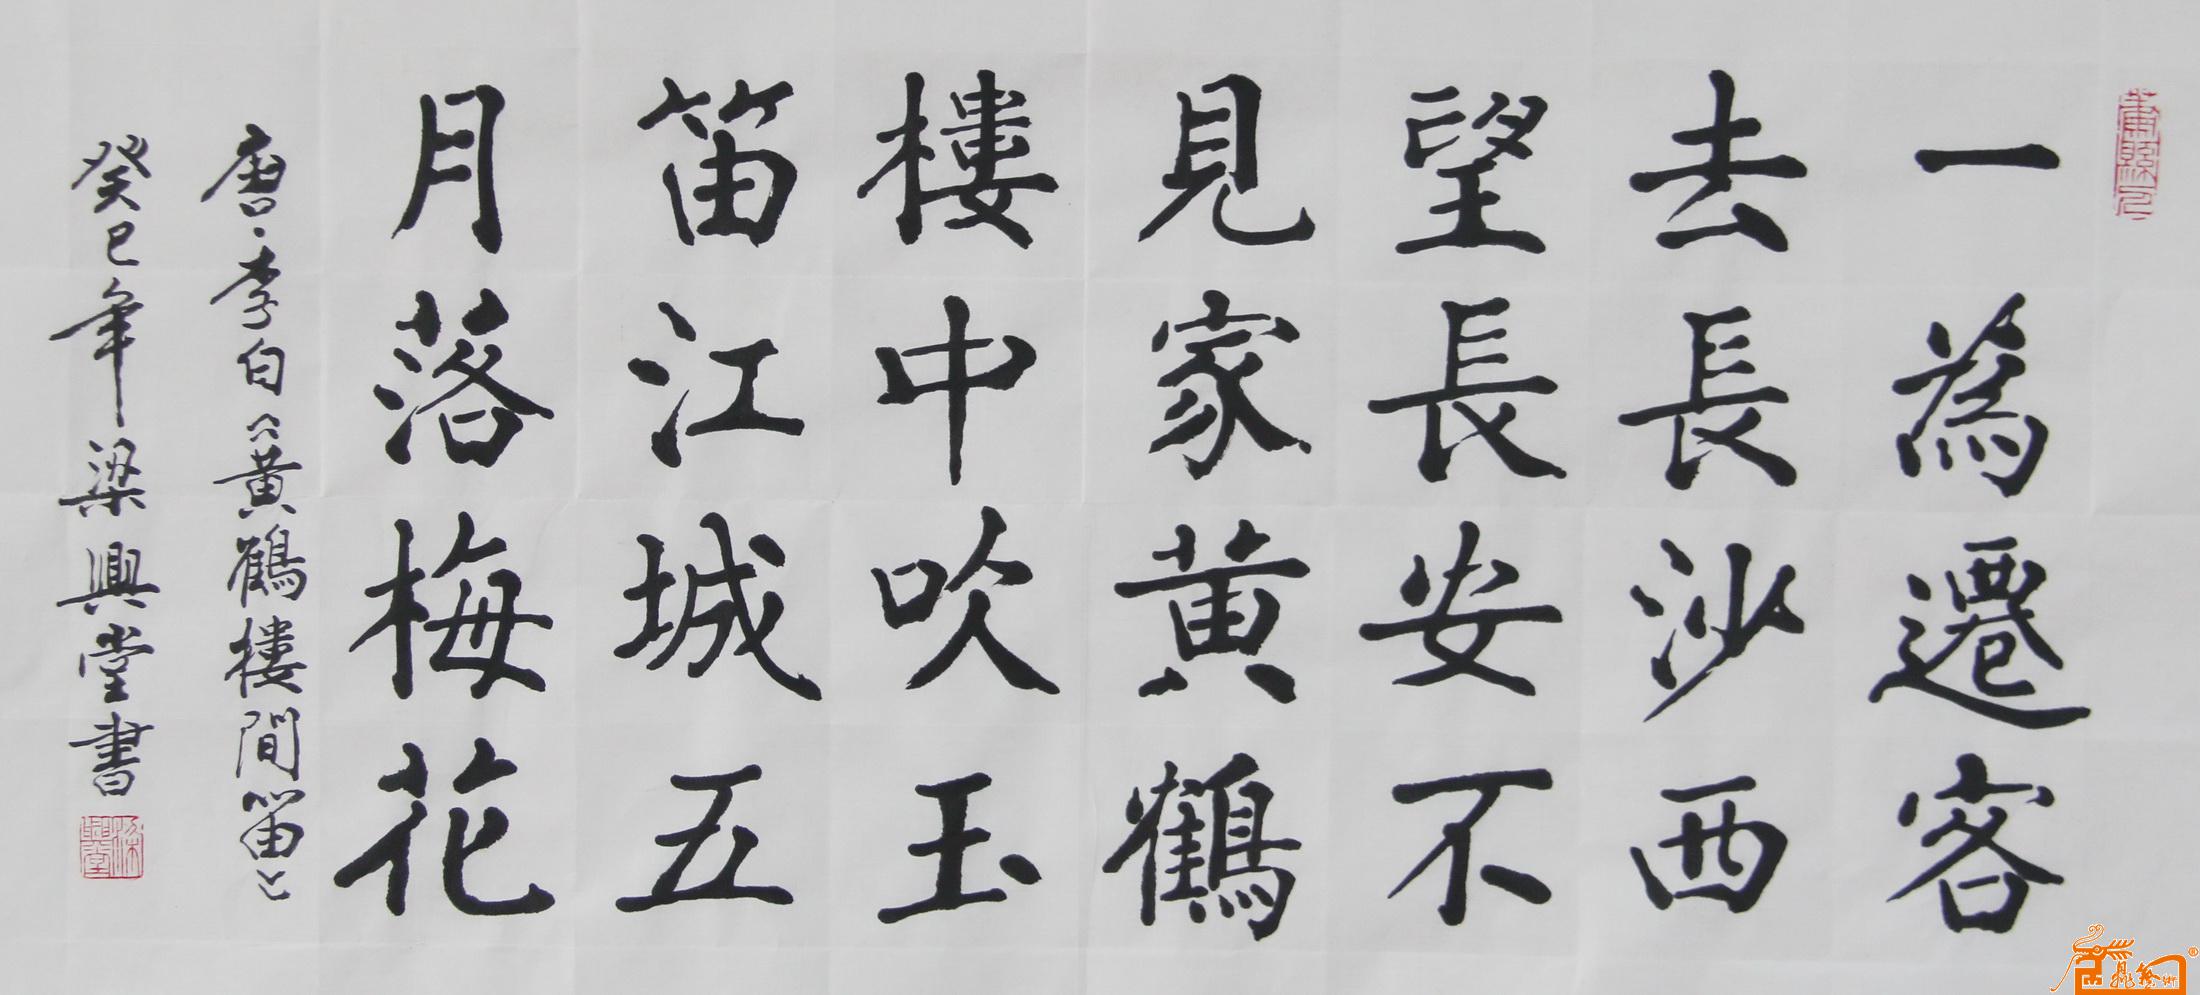 一為遷客
去長沙西
望長安不
見家黄鶴
樓中吹玉
笛江城五
月落梅花
唐·李白《黄鶴樓閒笛》
癸巳年梁興堂書
梁興堂